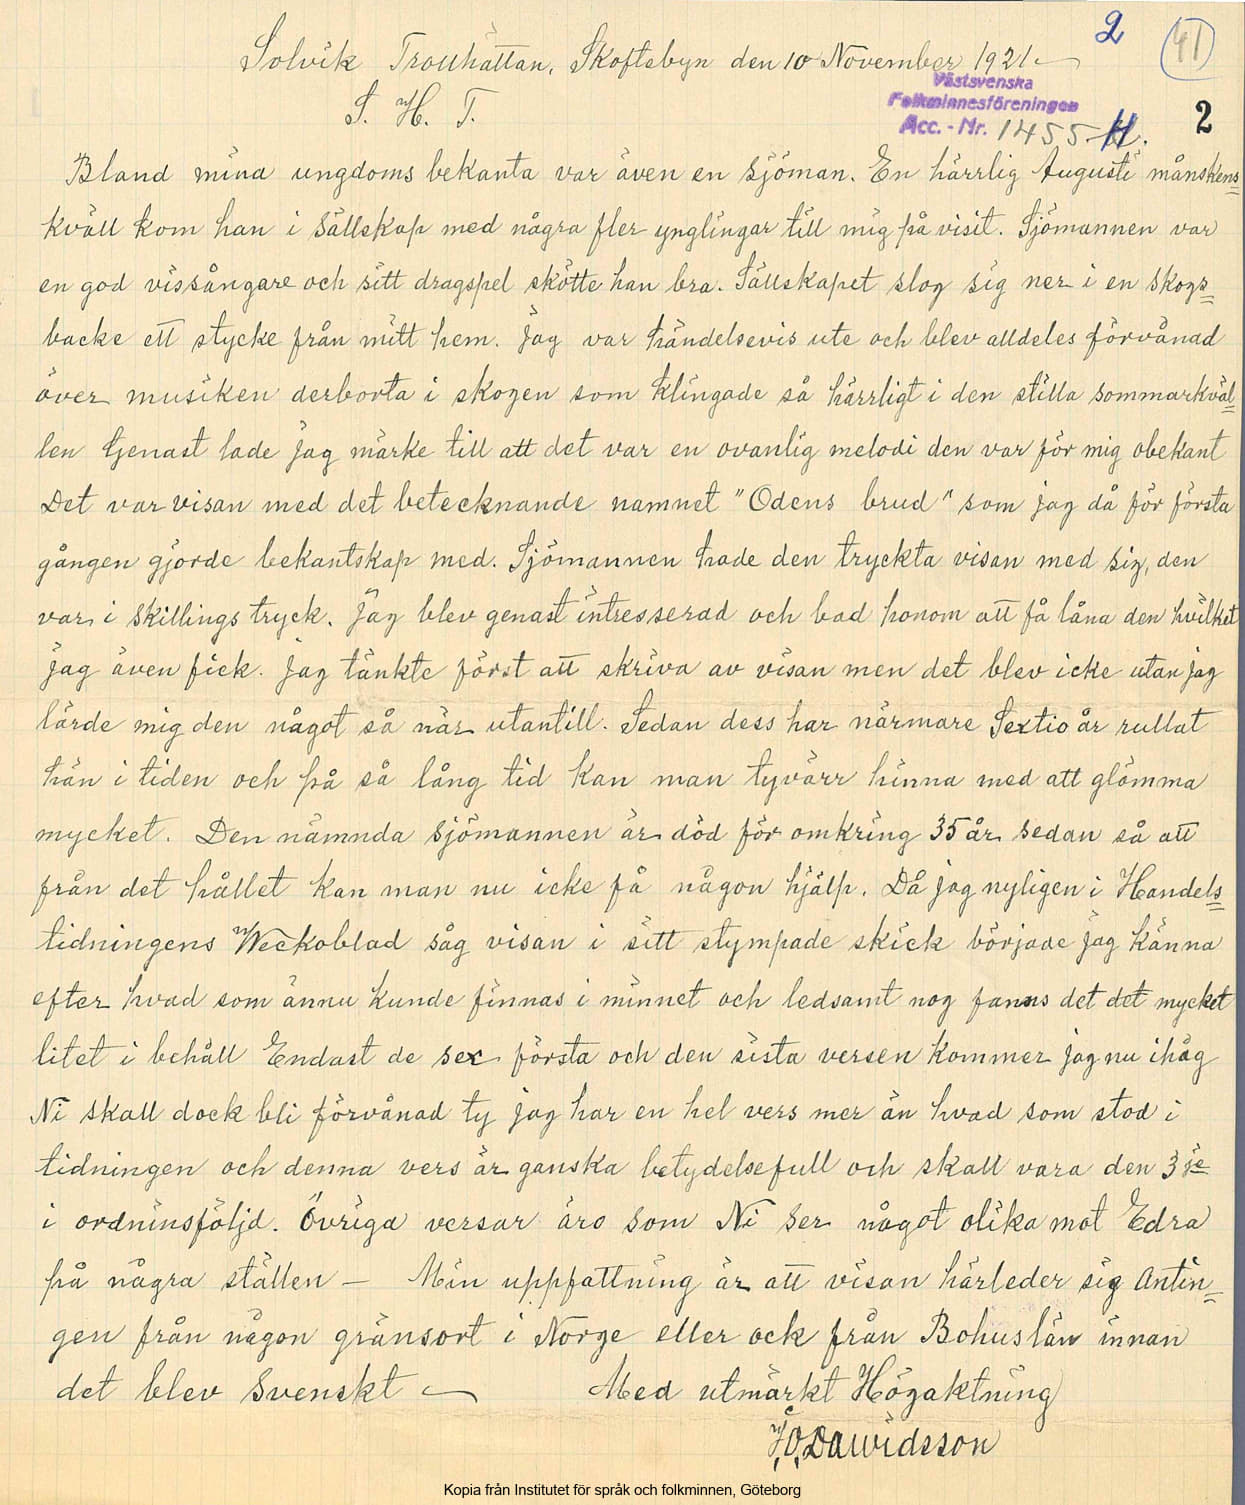 2 41
Solvik Trollhättan, Skoftebyn den 10 November 1921.
Västsvenska
S. H. T.
Folkminnesföreningen
Acc. - Nr. 1455 H.
2
Bland mina ungdoms bekanta var även en sjöman. En härrlig Augusti månskens=
kväll kom han i sällskap med några fler ynglingar till mig på visit. Sjömannen var
en god vissångare och sitt dragspel skötte han bra. Sällskapet slog sig ner i en skogs=
backe ett stycke från mitt hem. Jag var händelsevis ute och blev alldeles förvånad
över musiken derborta i skogen som klingade så härrligt i den stilla sommarkväl=
len Genast lade jag märke till att det var en ovanlig melodi den var för mig obekant
Det var visan med det betecknande namnet "Odens brud" som jag då för första
gången gjorde bekantskap med. Sjömannen hade den tryckta visan med sig, den
var i skillings tryck. Jag blev genast intresserad och bad honom att få låna den hvilket
jag även fick. Jag tänkte först att skriva av visan men det blev icke utan jag
lärde mig den något så när utantill. Sedan dess har närmare Sextio år rullat
hän i tiden och på så lång tid kan man tyvärr hinna med att glömma
mycket. Den nämnda sjömannen är död för omkring 35 år sedan så att
från det hållet kan man nu icke få någon hjälp. Då jag nyligen i Handels=
tidningens Weckoblad såg visan i sitt stympade skick började jag känna
efter hvad som ännu kunde finnas i minnet och ledsamt nog fanns det det mycket
litet i behåll Endast de sex första och den sista versen kommer jag nu ihåg
Ni skall dock bli förvånad ty jag har en hel vers mer än hvad som stod i
tidningen och denna vers är ganska betydelsefull och skall vara den 3je
i ordninsföljd. Övriga versar äro som Ni ser något olika mot Edra
på några ställen — Min uppfattning är att visan härleder sig Antin=
gen från någon gränsort i Norge eller ock från Bohuslän innan
det blev Svenskt — Med utmärkt Högaktning
J, O, Dawidsson
Kopia från Institutet för språk och folkminnen, Göteborg